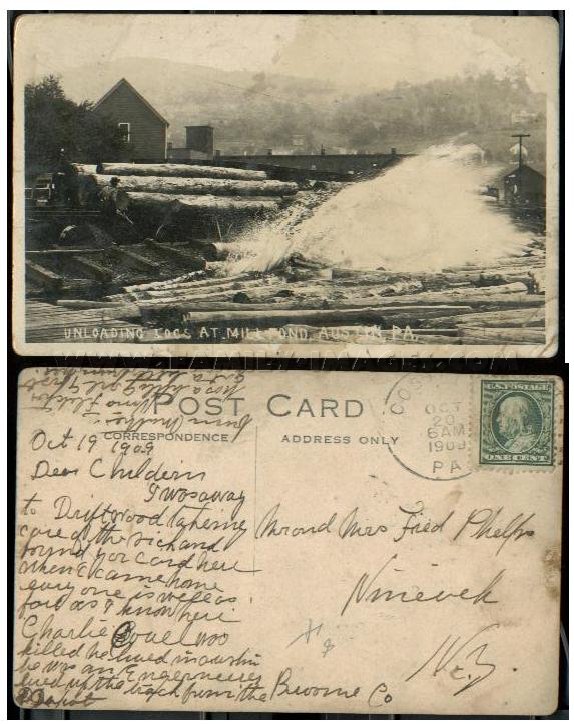 UNLOADING LOGS AT MILL POND, AUSTIN, PA.
POST CARD
CORRESPONDENCE
ADDRESS ONLY
COS
OCT
20
6 AM
1909
PA
U.S. POSTAGE
ONE CENT
Oct 19 1909
Dear Childern
I was away
to Driftwood takeing
care of the sick and
found your card here
when I came home
every one is well as
far as I know here
Charlie was
killed he lived in austin
he was an Engerneer
lived up the track from the
Depot
Mr and Mrs Fred Phelps
Ninevek
Broome Co
N.Y.